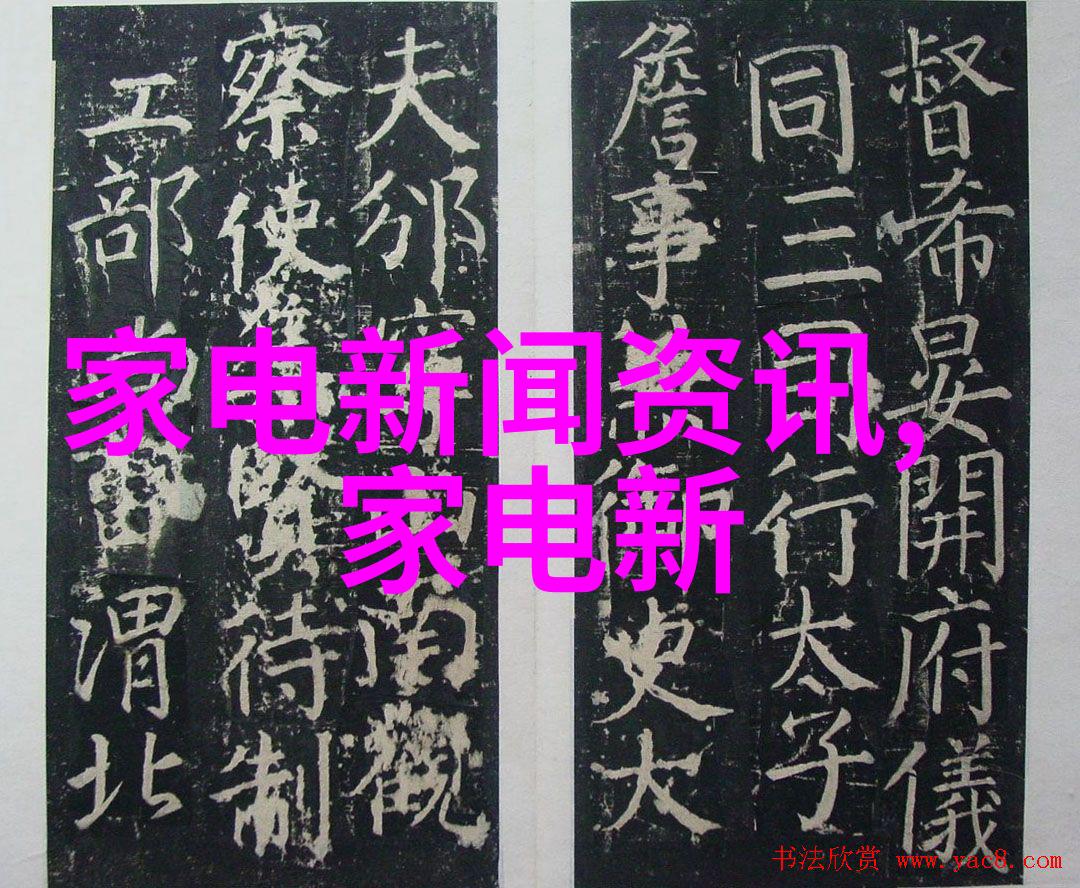 督希晏開府儀
同三司行太子
詹事御史大
夫邠寧觀
察使賢待制
工部尚書渭北
家电新闻资讯,
家电新
书法欣赏 www.yac8.com